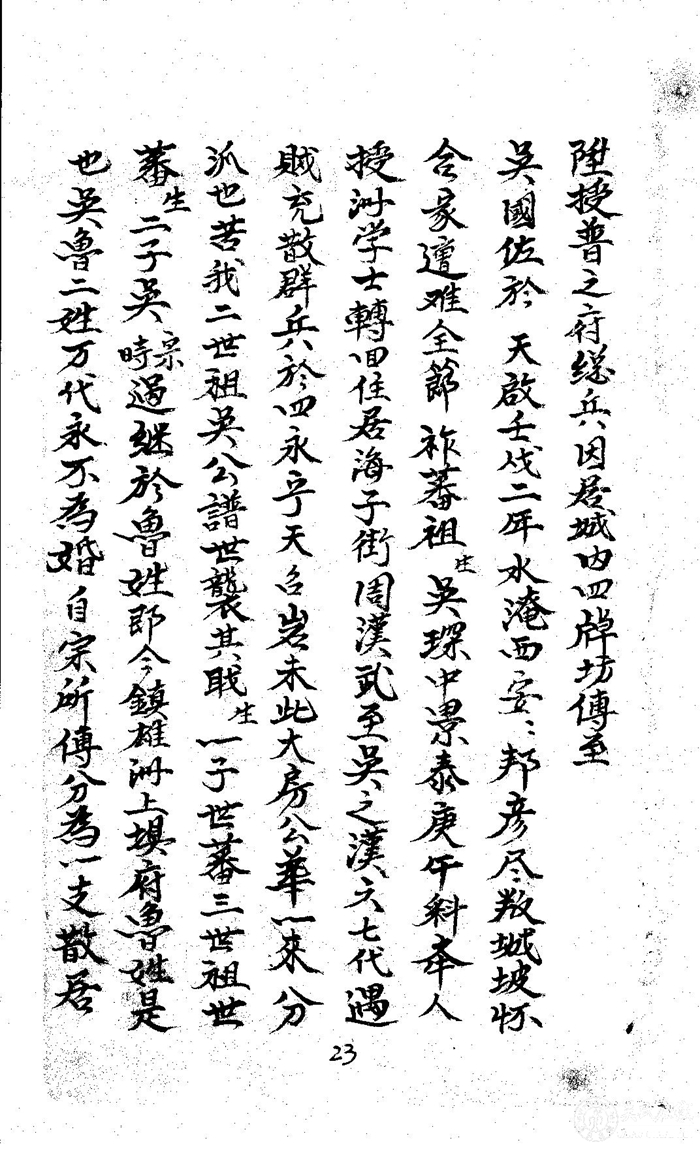 陞授普之府縂兵因居城内四牌坊傅至
吳國佐於 天啟壬戌二年水淹西安〻邦彦尽叛城坡怀
合家遭难全節 祚蕃祖生吳琛中景泰庚午科舉人
授洲学士轉回住居海子街周漢武至吳之漢文七代遇
賊充散群兵於四永乎天台岩未此大房公華一來分
派也苦我二世祖吳公譜世襲其職生一子世蕃三世祖世
蕃生二子吳宗時過継於魯姓即今鎮雄洲上塤府魯姓是
也吳魯二姓万代永不為婚自宗所傅分為一支散居
23